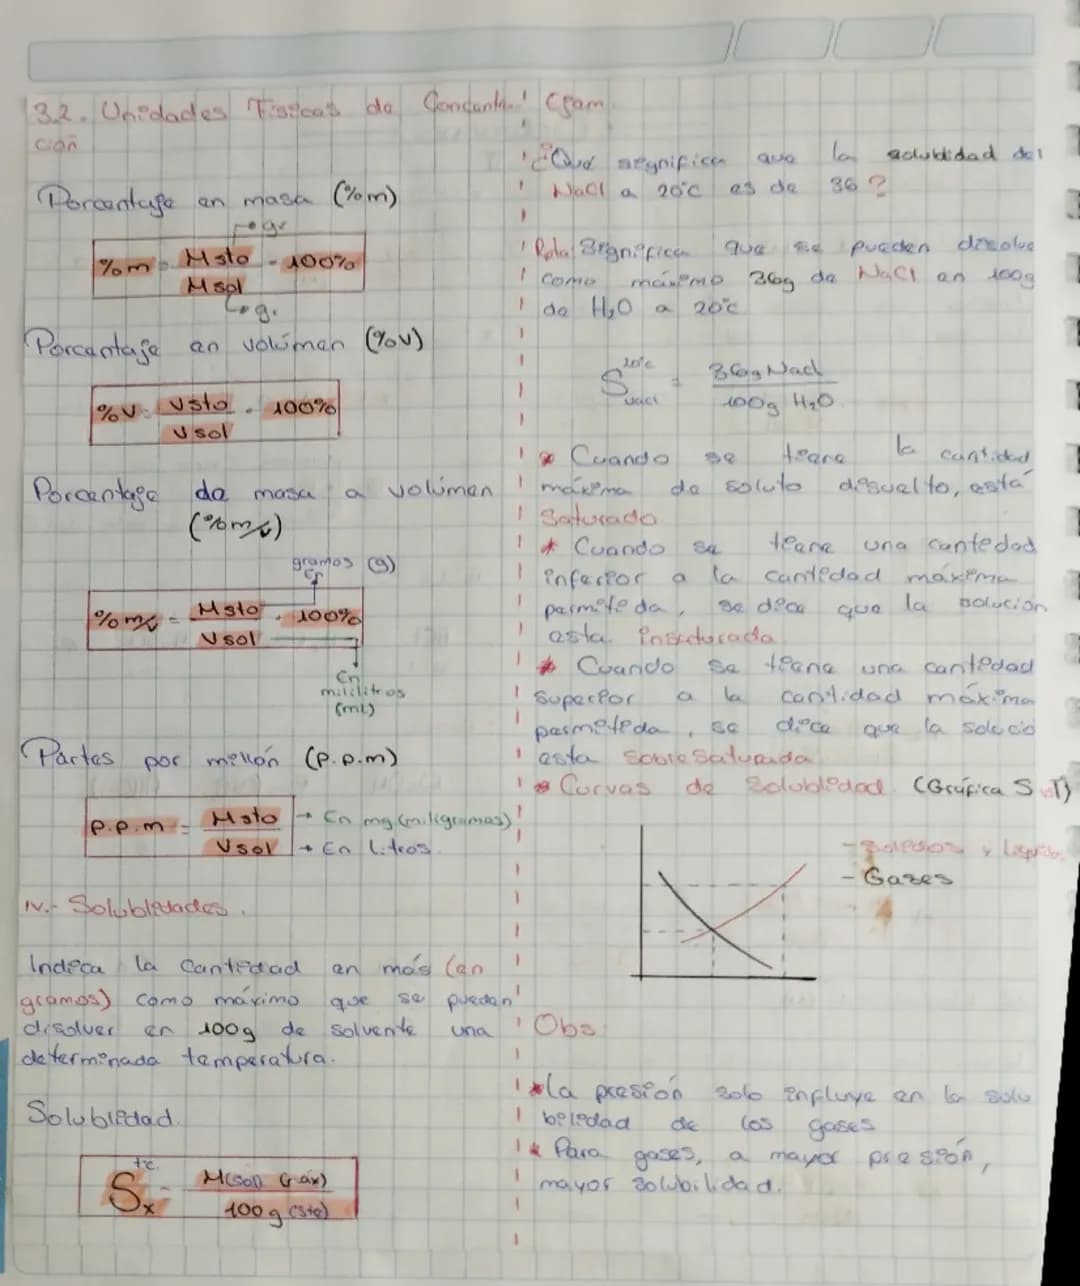 3.2. Unidades Fisicas de Concentra
ción
Porcentaje en masa (%m)
gr
%m = Msto . 100%
Msol
g.
Porcentaje en volúmen (%v)
%V = Vsto . 100%
Vsol
Porcentaje de masa a volúmen
(%m/v)
gramos (g)
%m/v = Msto . 100%
Vsol
En
mililitros
(ml)
Partes por millón (p.p.m)
p.p.m = Msto → En mg (miligramos)
Vsol → En litros.
IV.- Solubilidades.
Indica la cantidad en más (en
gramos) como máximo que se puedan
disolver en 100g de solvente una
determinada temperatura.
Solubilidad.
t°c
Sx = M(sol) (max)
100g (ste)
¿Qué significa que la solubilidad del
NaCl a 20°c es de 36?
Rpta/ Significa que se pueden disolve
como máximo 36g de NaCl en 100g
de H₂O a 20°c
20°c
S = 36g Nacl
Nacl 100g H₂O
* Cuando se tiene la cantidad
máxima de soluto disuelto, está
Saturado
* Cuando se tiene una cantidad
inferior a la cantidad máxima
permitida, se dice que la solucion
esta insaturada
* Cuando se tiene una cantidad
superior a la cantidad máxima
permitida, se dice que la solucio
esta Sobresaturada
* Curvas de Solubilidad. (Gráfica S vs T)
- Solidos y
- Gases
Obs:
* la presión solo influye en la solu
bilidad de los gases
* Para gases, a mayor presión,
mayor solubilidad.